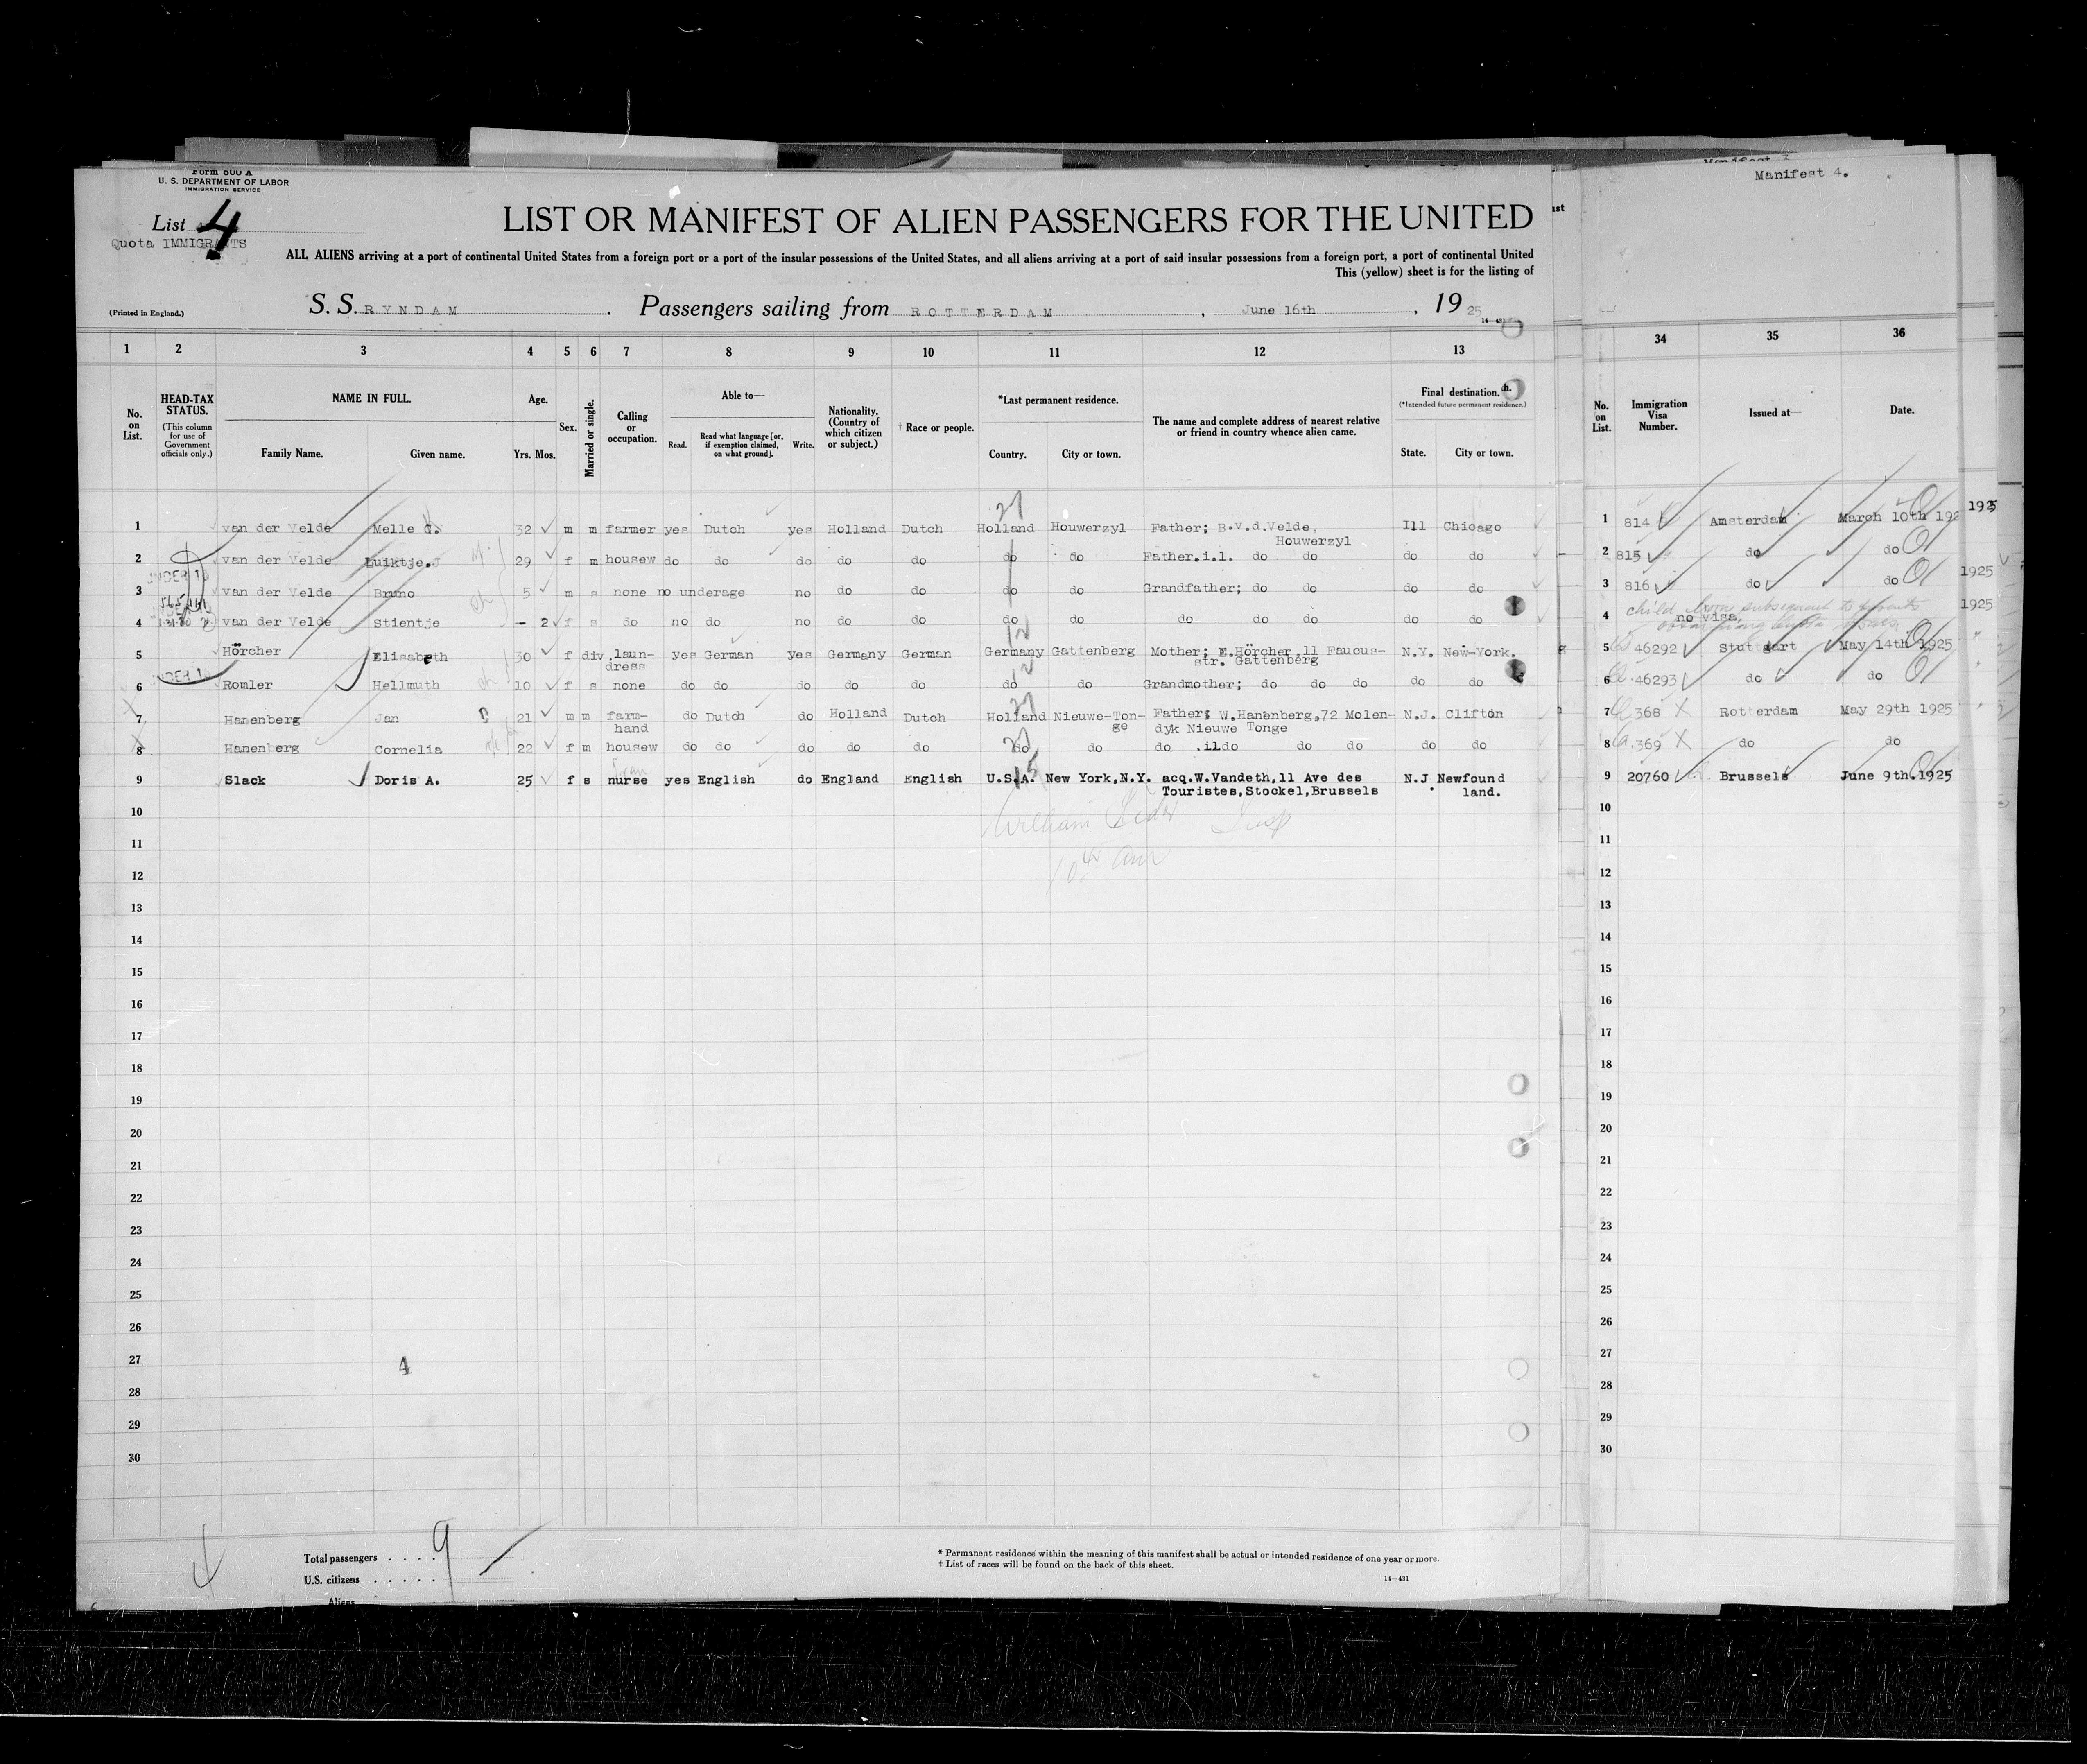 Manifest 4.
Form 600 A
U. S. DEPARTMENT OF LABOR
IMMIGRATION SERVICE
List 4
Quota IMMIGRANTS
LIST OR MANIFEST OF ALIEN PASSENGERS FOR THE UNITED
ALL ALIENS arriving at a port of continental United States from a foreign port or a port of the insular possessions of the United States, and all aliens arriving at a port of said insular possessions from a foreign port, a port of continental United
This (yellow) sheet is for the listing of
(Printed in England.)
S. S. RYNDAM. Passengers sailing from ROTTERDAM, June 16th, 1925
1 2 3 4 5 6 7 8 9 10 11 12 13 34 35 36
No. on List.
HEAD-TAX STATUS.
(This column for use of Government officials only.)
NAME IN FULL.
Family Name. Given name.
Age.
Yrs. Mos.
Sex.
Married or single.
Calling or occupation.
Able to—
Read. Read what language [or, if exemption claimed, on what ground]. Write.
Nationality. (Country of which citizen or subject.)
† Race or people.
*Last permanent residence.
Country. City or town.
The name and complete address of nearest relative or friend in country whence alien came.
Final destination.
(*Intended future permanent residence.)
State. City or town.
No. on List.
Immigration Visa Number.
Issued at—
Date.
1 van der Velde Melle G. 32 m m farmer yes Dutch yes Holland Dutch Holland Houwerzyl Father; B.v.d.Velde, Houwerzyl Ill Chicago 1 814 Amsterdam March 10th 1925
2 van der Velde Luiktje.J 29 f m housew do do do do do do do Father.i.l. do do do do 2 815 do do 1925
3 van der Velde Bruno 5 m s none no underage no do do do do Grandfather; do do do do 3 816 do do 1925
4 van der Velde Stientje - 2 f s do no do no do do do do do do do do do 4 no visa
child born subsequent to
5 Hörcher Elisabeth 30 f div. laun-dress yes German yes Germany German Germany Gattenberg Mother; E.Hörcher 11 Faucus-str. Gattenberg N.Y. New-York. 5 46292 Stuttgart May 14th 1925
6 Romler Hellmuth 10 f s none do do do do do do do Grandmother; do do do do do 6 46293 do do
7 Hanenberg Jan 21 m m farm-hand do Dutch do Holland Dutch Holland Nieuwe-Tonge Father; W.Hanenberg,72 Molen-dyk Nieuwe Tonge N.J. Clifton 7 368 Rotterdam May 29th 1925
8 Hanenberg Cornelia 22 f m housew do do do do do do do do .il do do do do do 8 369 do do
9 Slack Doris A. 25 f s nurse yes English do England English U.S.A. New York,N.Y. acq.W.Vandeth,11 Ave des Touristes,Stockel,Brussels N.J. Newfound land. 9 20760 Brussels June 9th.1925
10 10
11 11
12 12
13 13
14 14
15 15
16 16
17 17
18 18
19 19
20 20
21 21
22 22
23 23
24 24
25 25
26 26
27 4 27
28 28
29 29
30 30
Total passengers . . . . 9
U.S. citizens . . . . .
Aliens
* Permanent residence within the meaning of this manifest shall be actual or intended residence of one year or more.
† List of races will be found on the back of this sheet.
14—431